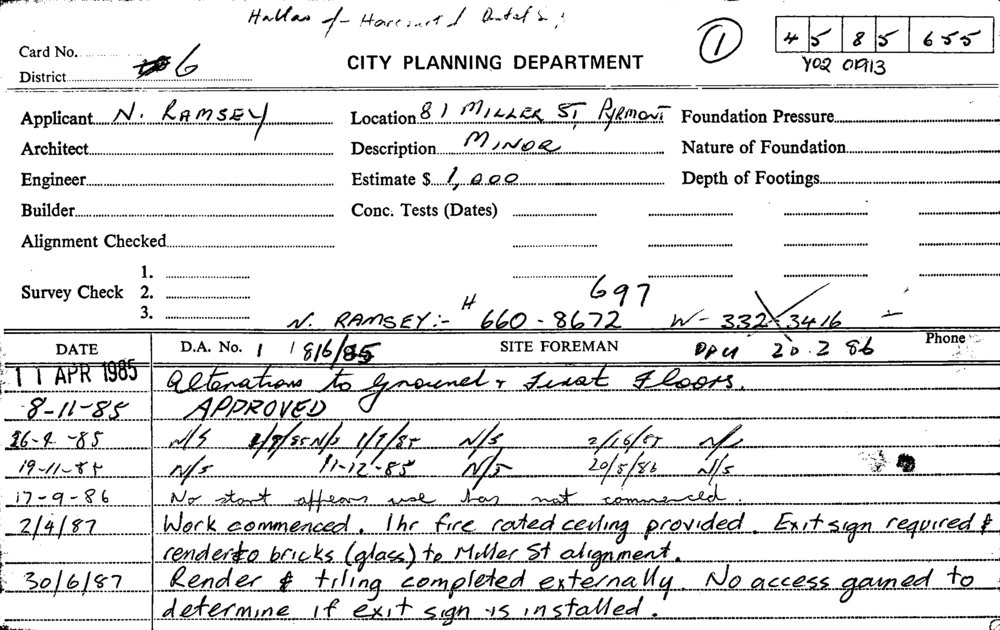 Harcourt
1
Card No.
4 5 8 5 655
6
CITY PLANNING DEPARTMENT
Y02 01913
District
Applicant N. RAMSEY Location 81 MILLER ST, PYRMONT Foundation Pressure
Architect Description MINOR Nature of Foundation
Engineer Estimate $ 1,000 Depth of Footings
Builder Conc. Tests (Dates)
Alignment Checked
1.
Survey Check 2.
3.
697
N. RAMSEY:- H 660-8672 W- 332-3416
DATE D.A. No. SITE FOREMAN 20 2 86 Phone
11 APR 1985 Alterations to Ground & First Floors.
8-11-85 APPROVED
N/S N/S 1/7/85 N/S
19-11-85 N/S 11-12-85 N/S 20/5/86 N/S
17-9-86 No start appears use has not commenced.
2/4/87 Work commenced. 1hr fire rated ceiling provided. Exit sign required &
render to bricks (glass) to Miller St alignment.
30/6/87 Render & tiling completed externally. No access gained to
determine if exit sign is installed.